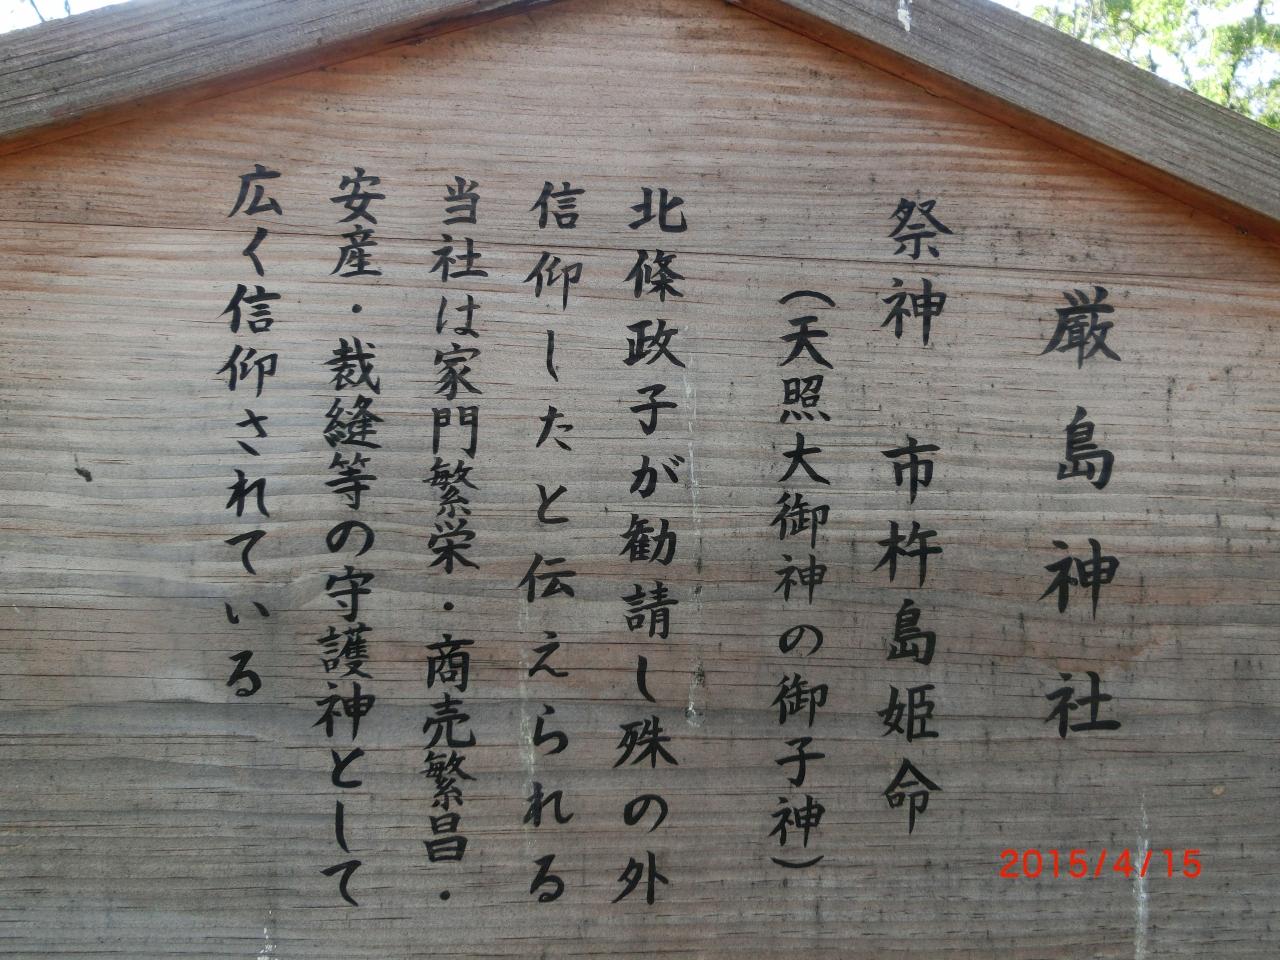 厳島神社
祭神 市杵島姫命
(天照大御神の御子神)
北條政子が勧請し殊の外
信仰したと伝えられる
当社は家門繁栄・商売繁昌・
安産・裁縫等の守護神として
広く信仰されている
2015/4/15